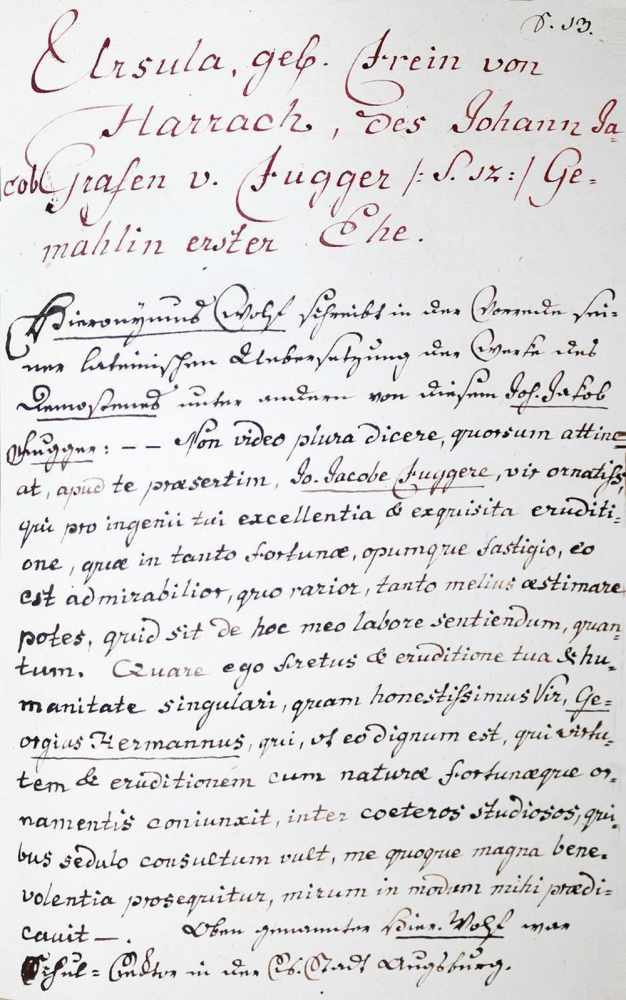 S. 13.
Ursula, geb. Frein von
Harrach, des Johann Ja-
cob Grafen v. Fugger /: S. 12 :/ Ge-
mahlin erster Ehe.
Hieronymus Wolf schreibt in der Vorrede sei-
ner lateinischen Uebersetzung der Werke des
Demostenes unter andern von diesem Joh. Jakob
Fugger: — — Non video plura dicere, quorsum attine-
at, apud te præsertim, Jo. Jacobe Fuggere, vir ornatiss.
qui pro ingenii tui excellentia & exquisita eruditi-
one, quæ in tanto fortunæ, opumque fastigio, eo
est admirabilior, quo rarior, tanto melius æstimare
potes, quid sit de hoc meo labore sentiendum, quan-
tum. Quare ego fretus & eruditione tua & hu-
manitate singulari, quam honestissimus Vir, Ge-
orgius Hermannus, qui, ut eo dignum est, qui virtu-
tem & eruditionem cum naturæ fortunæque or-
namentis coniunxit, inter coeteros studiosos, qui-
bus sedulo consultum vult, me quoque magna bene-
volentia prosequitur, mirum in modum mihi prædi-
cavit —. Oben genannter Hier. Wolf war
Schul-Rektor in der Rs. Stadt Augsburg.